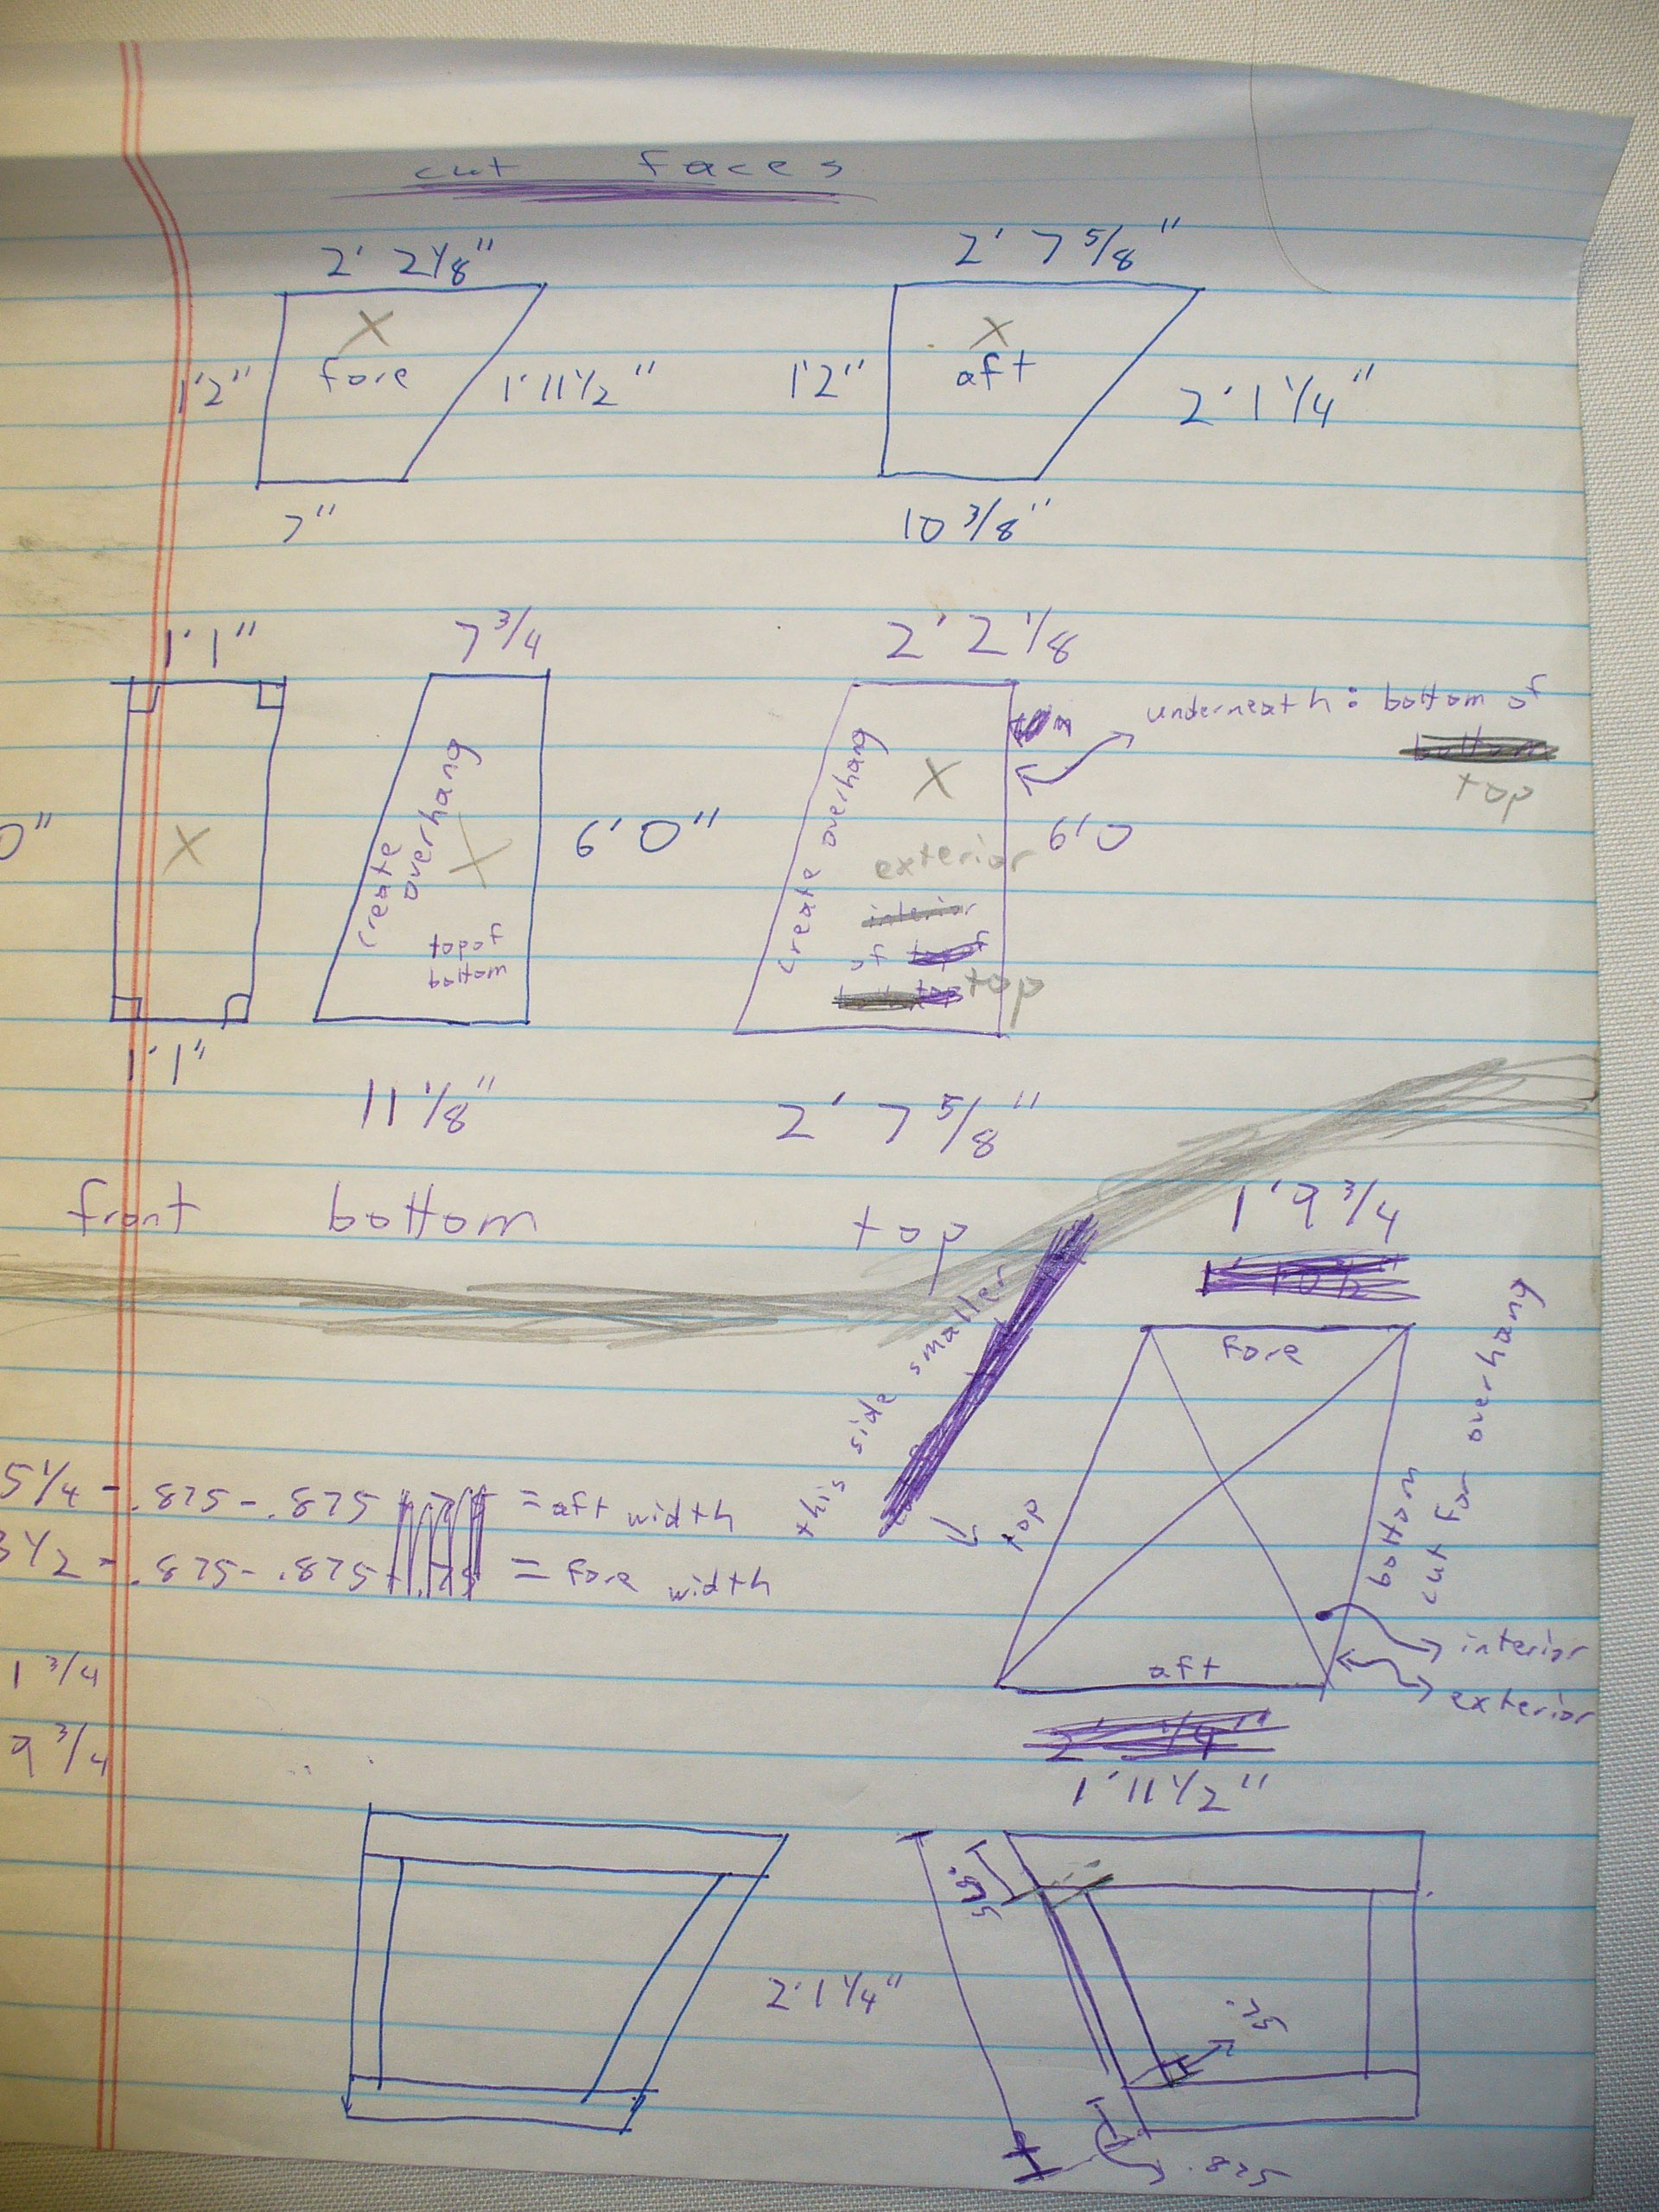 cut faces
2' 2 1/8"
2' 7 5/8"
X
X
fore
aft
1'2"
1'11 1/2"
1'2"
2'1 1/4"
7"
10 3/8"
1'1"
7 3/4
2' 2 1/8
underneath: bottom of
top
create overhang
create overhang
X
X
X
0"
6'0"
6'0
exterior
top of
bottom
of
top
1'1"
11 1/8"
2' 7 5/8"
front
bottom
top
1'9 3/4
this side smaller
fore
top
bottom
cut for overhang
5 1/4 - .875 - .875 = aft width
3 1/2 - .875 - .875 = fore width
interior
aft
exterior
1 3/4
9 3/4
1'11 1/2"
2'1 1/4"
.75
.875